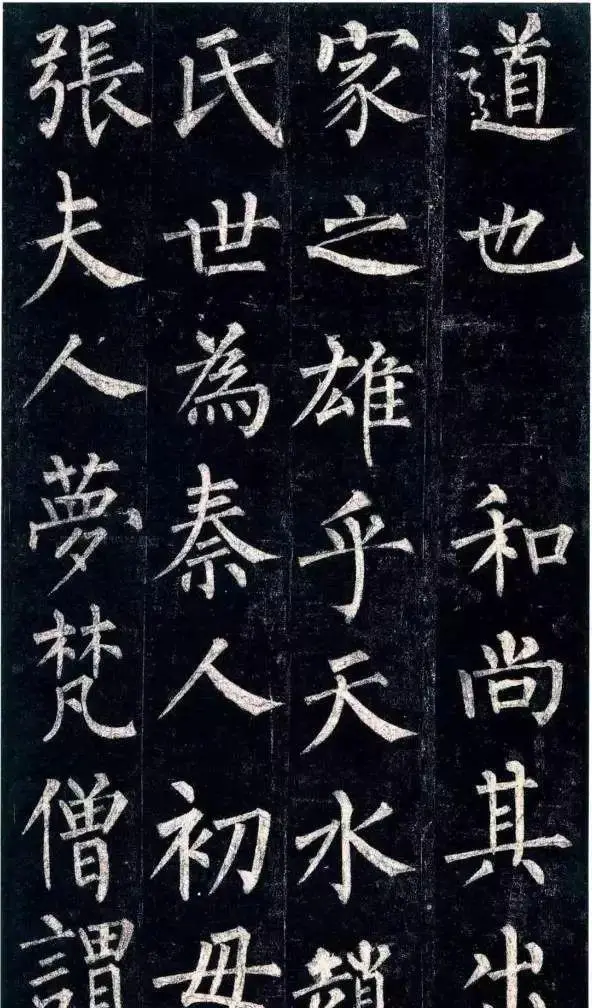 道也 和尚其出
家之雄乎天水趙
氏世為秦人初母
張夫人夢梵僧謂